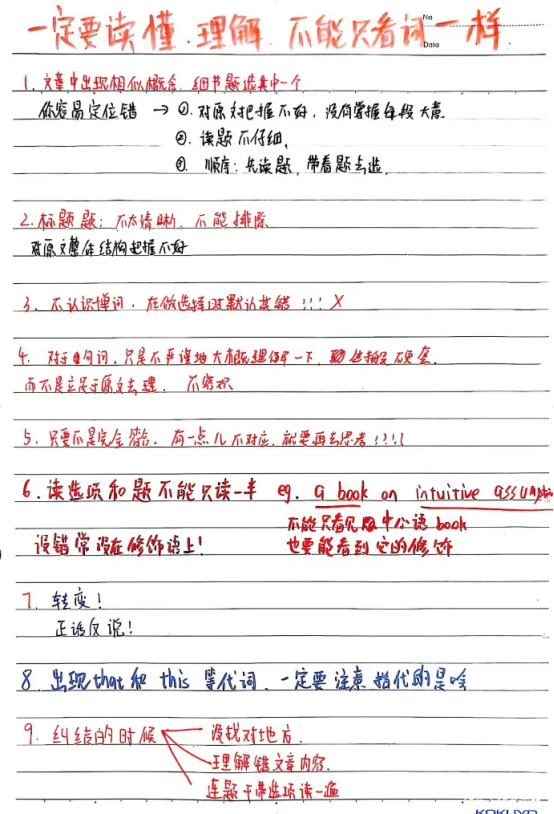 一定要读懂.理解.不能只看词一样.
No
Date
1. 文章中出现相似概念,细节题选其中一个
你容易定位错 → ①. 对原文把握不好,没有掌握每段大意.
②. 读题不仔细.
③. 顺序:先读题,带着题去选.
2. 标题题:不太清晰.不能排除
对原文整体结构把握不好
3. 不认识单词.在做选择时默认其错!!! X
4. 对于 词,只是不严谨地大概理解一下,
而不是立足于原文去理. 不
5. 只要不是完全 .有一点儿不对应.就要再去思考!!!!
6. 读选项和题不能只读一半 eg. a book on intuitive
不能只看见 中心语 book
没错常设在修饰语上! 也要能看到它的修饰
7. 转变!
正话反说!
8. 出现that和 this 等代词.一定要注意指代的是啥
9. 纠结的时候 没找对地方.
理解错文章内容.
连题干带选项读一遍
KOKUYO